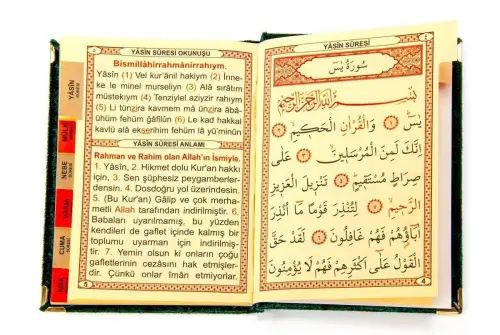 YÂSÎN SÛRESİ OKUNUŞU
Bismillâhirrahmânirrahıym.
Yâsîn (1) Vel kur'ânil hakiym (2) İnne-
ke le minel murseliyn (3) Alâ sırâtım
müstekıym (4) Tenziylel aziyzir rahıym
(5) Li tünzira kavmem mâ ünzira âbâ-
ühüm fehüm gâfilûn (6) Le kad hakkal
kavlü alâ ekserihim fehüm lâ yü'minûn
YÂSÎN SÛRESİ ANLAMI
Rahman ve Rahim olan Allah'ın İsmiyle.
1. Yâsîn, 2. Hikmet dolu Kur'an hakkı
için, 3. Sen şüphesiz peygamberler-
densin. 4. Dosdoğru yol üzerindesin.
5. (Bu Kur'an) Gâlip ve çok merha-
metli Allah tarafından indirilmiştir. 6.
Babaları uyarılmamış, bu yüzden
kendileri de gaflet içinde kalmış bir
toplumu uyarman için indirilmiş-
tir. 7. Yemin olsun ki onların çoğu
gafletlerinin cezasını hak etmişler-
dir. Çünkü onlar îman etmiyorlar.
5
YÂSÎN
SÛRESİ
MÜLK
NEBE
CUMA
YÂSİN SÛRESİ
سُورَةُ يٰسٓ
بِسْمِ اللّٰهِ الرَّحْمٰنِ الرَّحِيمِ
يٰسٓ ﴿١﴾ وَالْقُرْاٰنِ الْحَكِيمِ ﴿٢﴾
اِنَّكَ لَمِنَ الْمُرْسَلِينَ ﴿٣﴾ عَلٰى
صِرَاطٍ مُسْتَقِيمٍ ﴿٤﴾ تَنْزِيلَ الْعَزِيزِ
الرَّحِيمِ ﴿٥﴾ لِتُنْذِرَ قَوْمًا مَٓا اُنْذِرَ
اٰبَٓاؤُ۬هُمْ فَهُمْ غَافِلُونَ ﴿٦﴾ لَقَدْ حَقَّ
الْقَوْلُ عَلٰٓى اَكْثَرِهِمْ فَهُمْ لَا يُؤْمِنُونَ
4